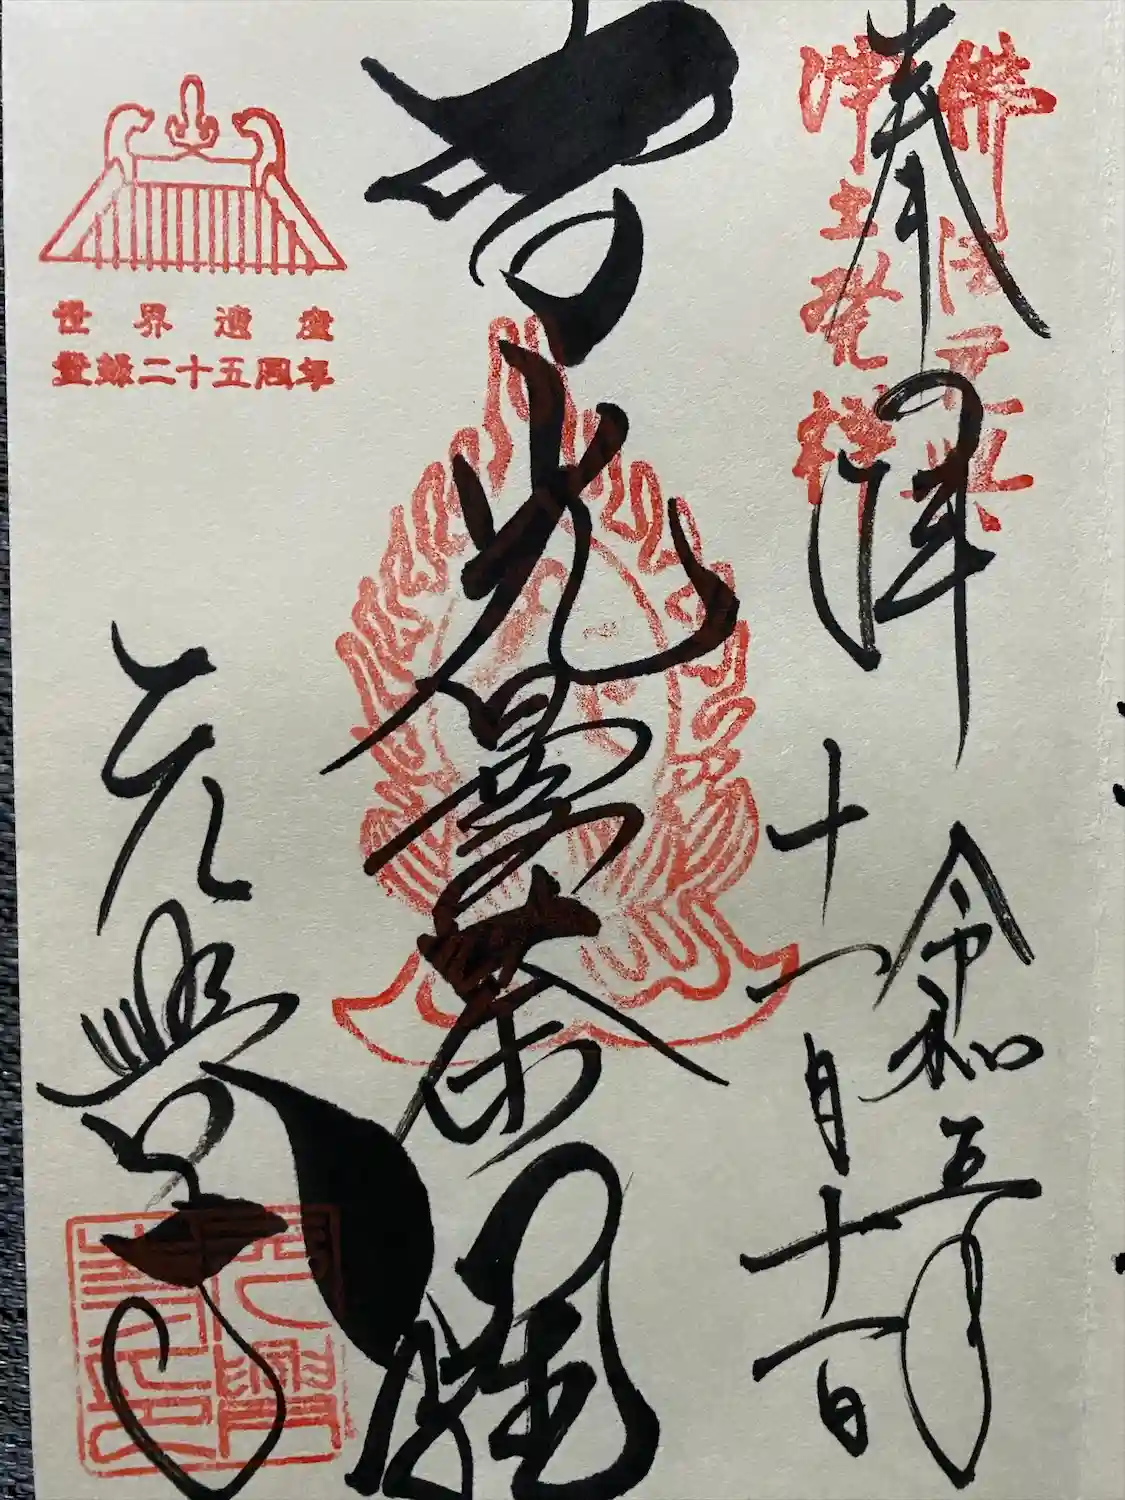 奉拝
佛法元興
淨土発祥
令和五年
十一月十一日
智光曼荼羅
世界遺産
登録二十五周年
元興寺